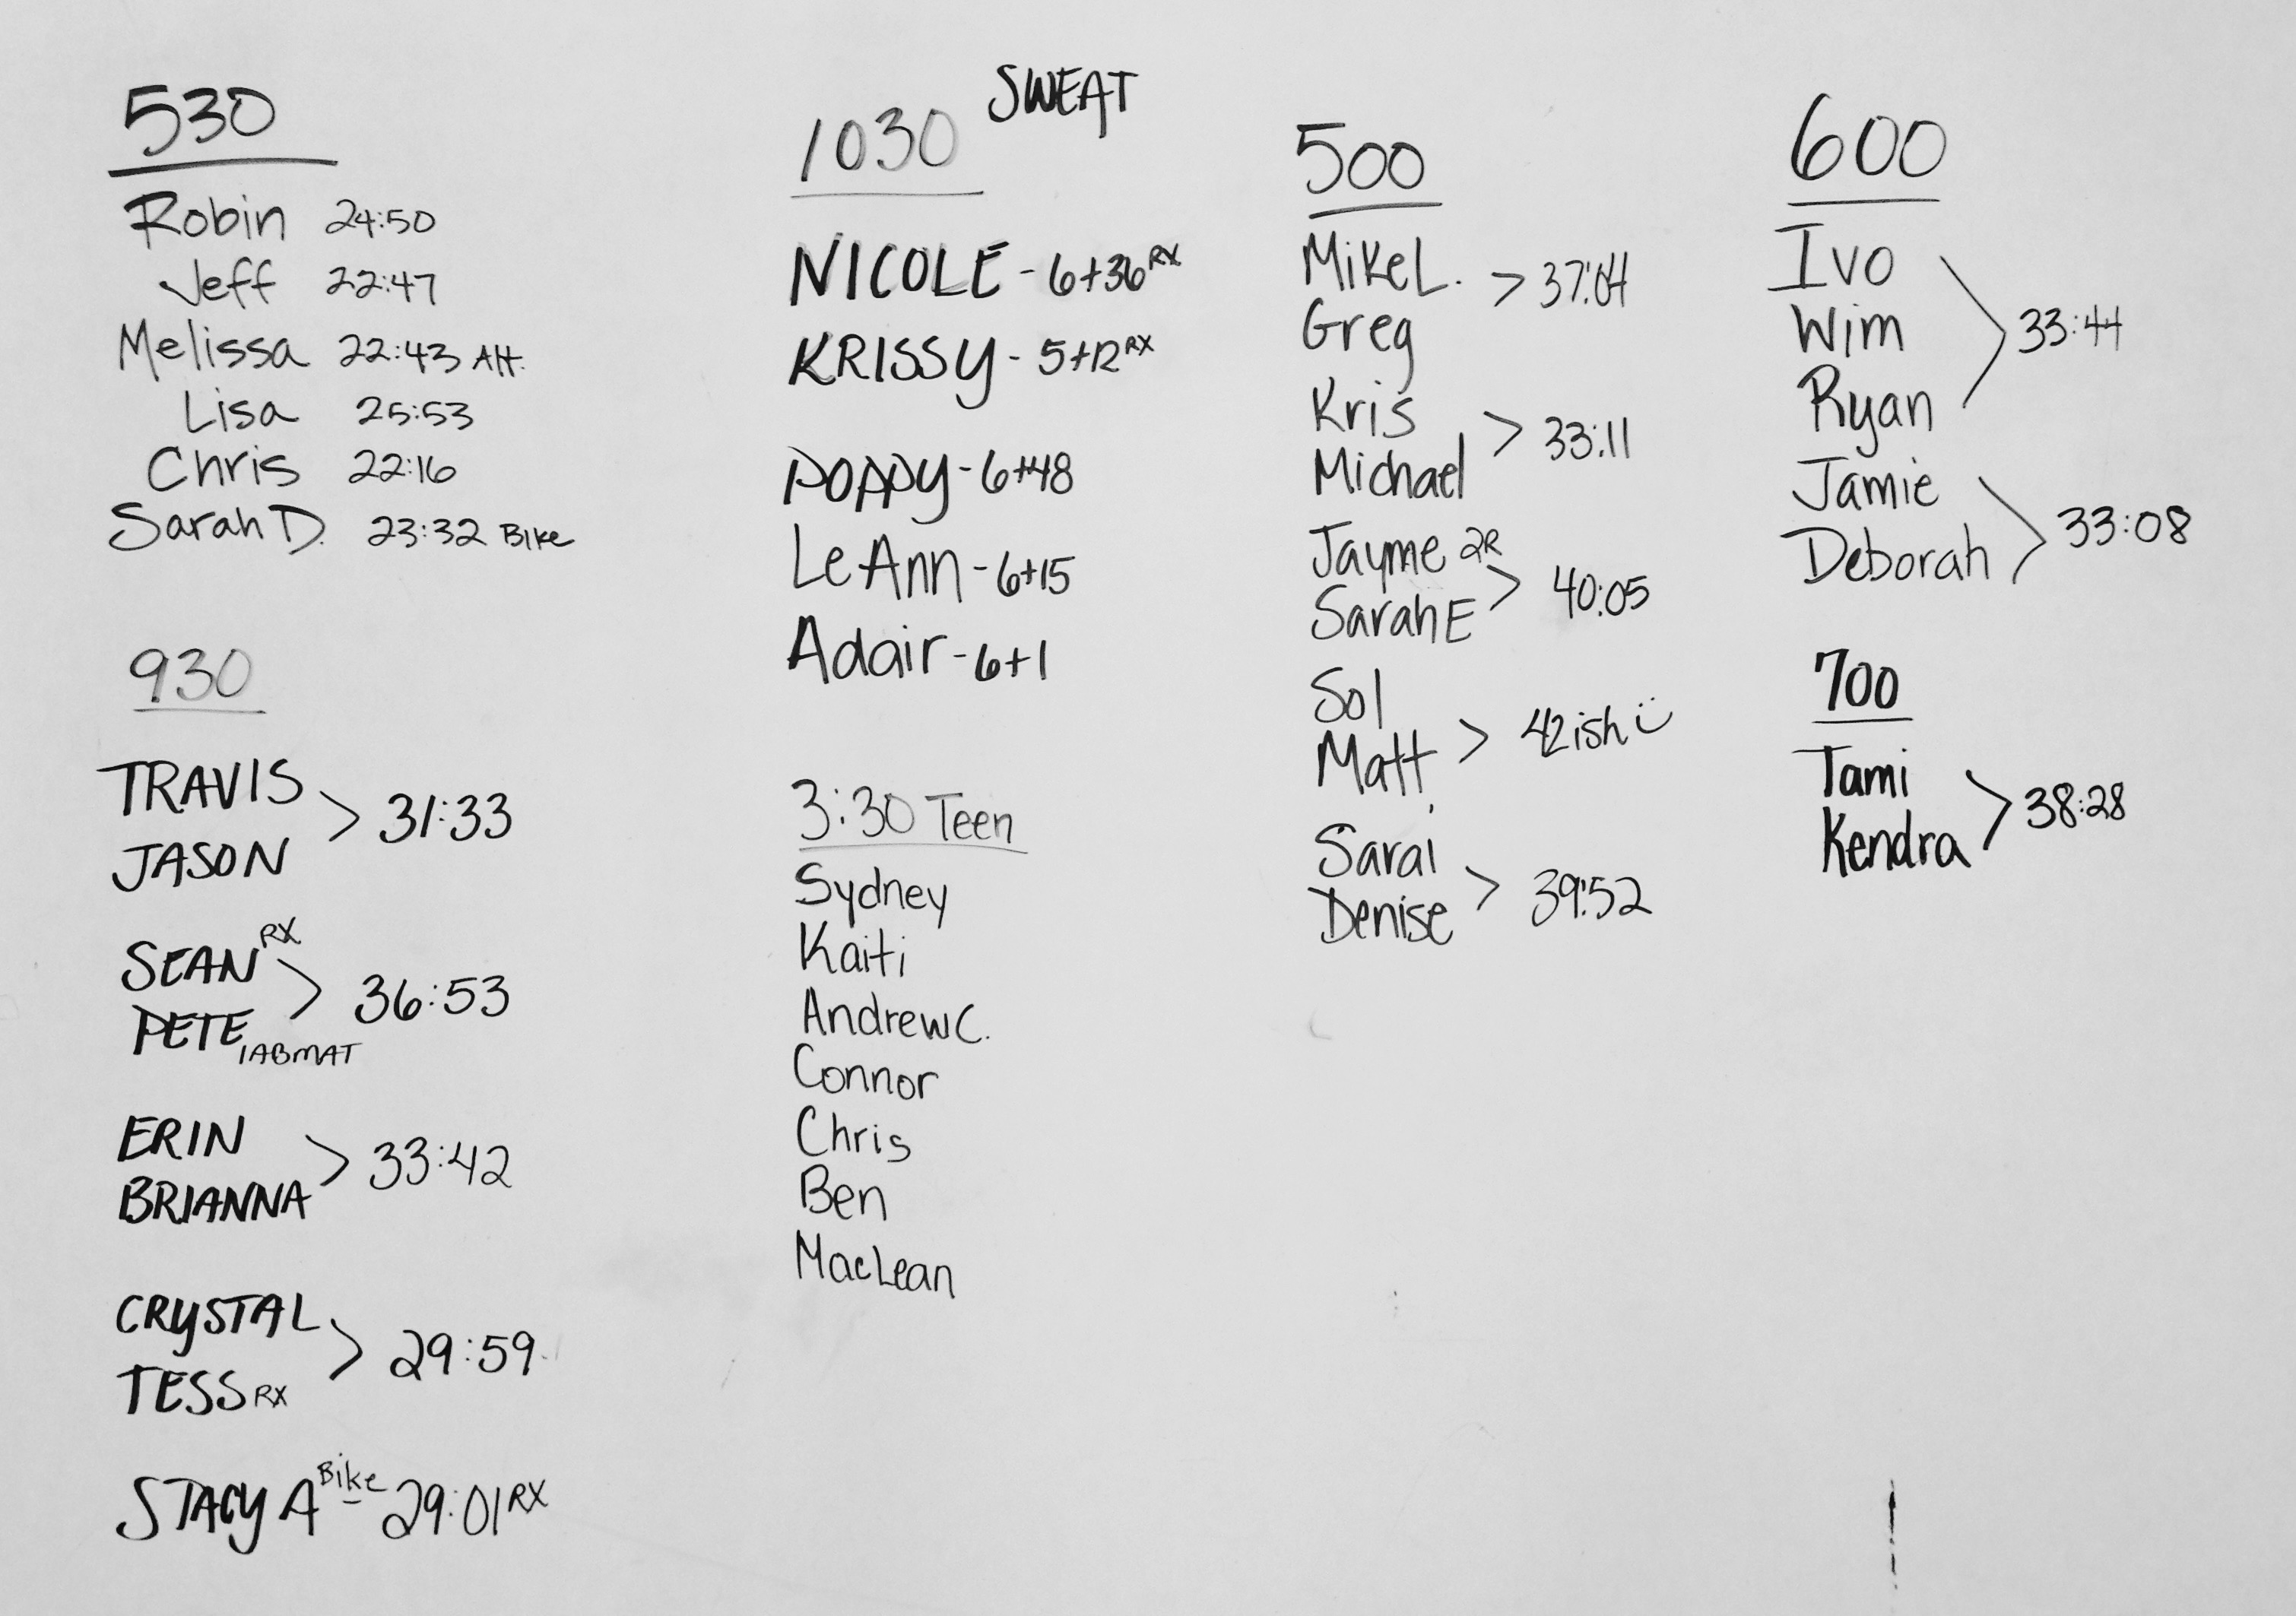 530
Robin 24:50
Jeff 22:47
Melissa 22:43 Alt.
Lisa 25:53
Chris 22:16
Sarah D. 23:32 Bike
930
TRAVIS
JASON > 31:33
SEAN RX
PETE 1ABMAT > 36:53
ERIN
BRIANNA > 33:42
CRYSTAL
TESS RX > 29:59
STACY A Bike 29:01 RX
1030 SWEAT
NICOLE - 6+36 RX
KRISSY - 5+12 RX
POPPY - 6+48
LeAnn - 6+15
Adair - 6+1
3:30 Teen
Sydney
Kaiti
Andrew C.
Connor
Chris
Ben
MacLean
500
Mike L.
Greg > 37:04
Kris
Michael > 33:11
Jayme 2R
Sarah E > 40:05
Sol
Matt > 42ish
Sarai
Denise > 39:52
600
Ivo
Wim
Ryan > 33:44
Jamie
Deborah > 33:08
700
Tami
Kendra > 38:28